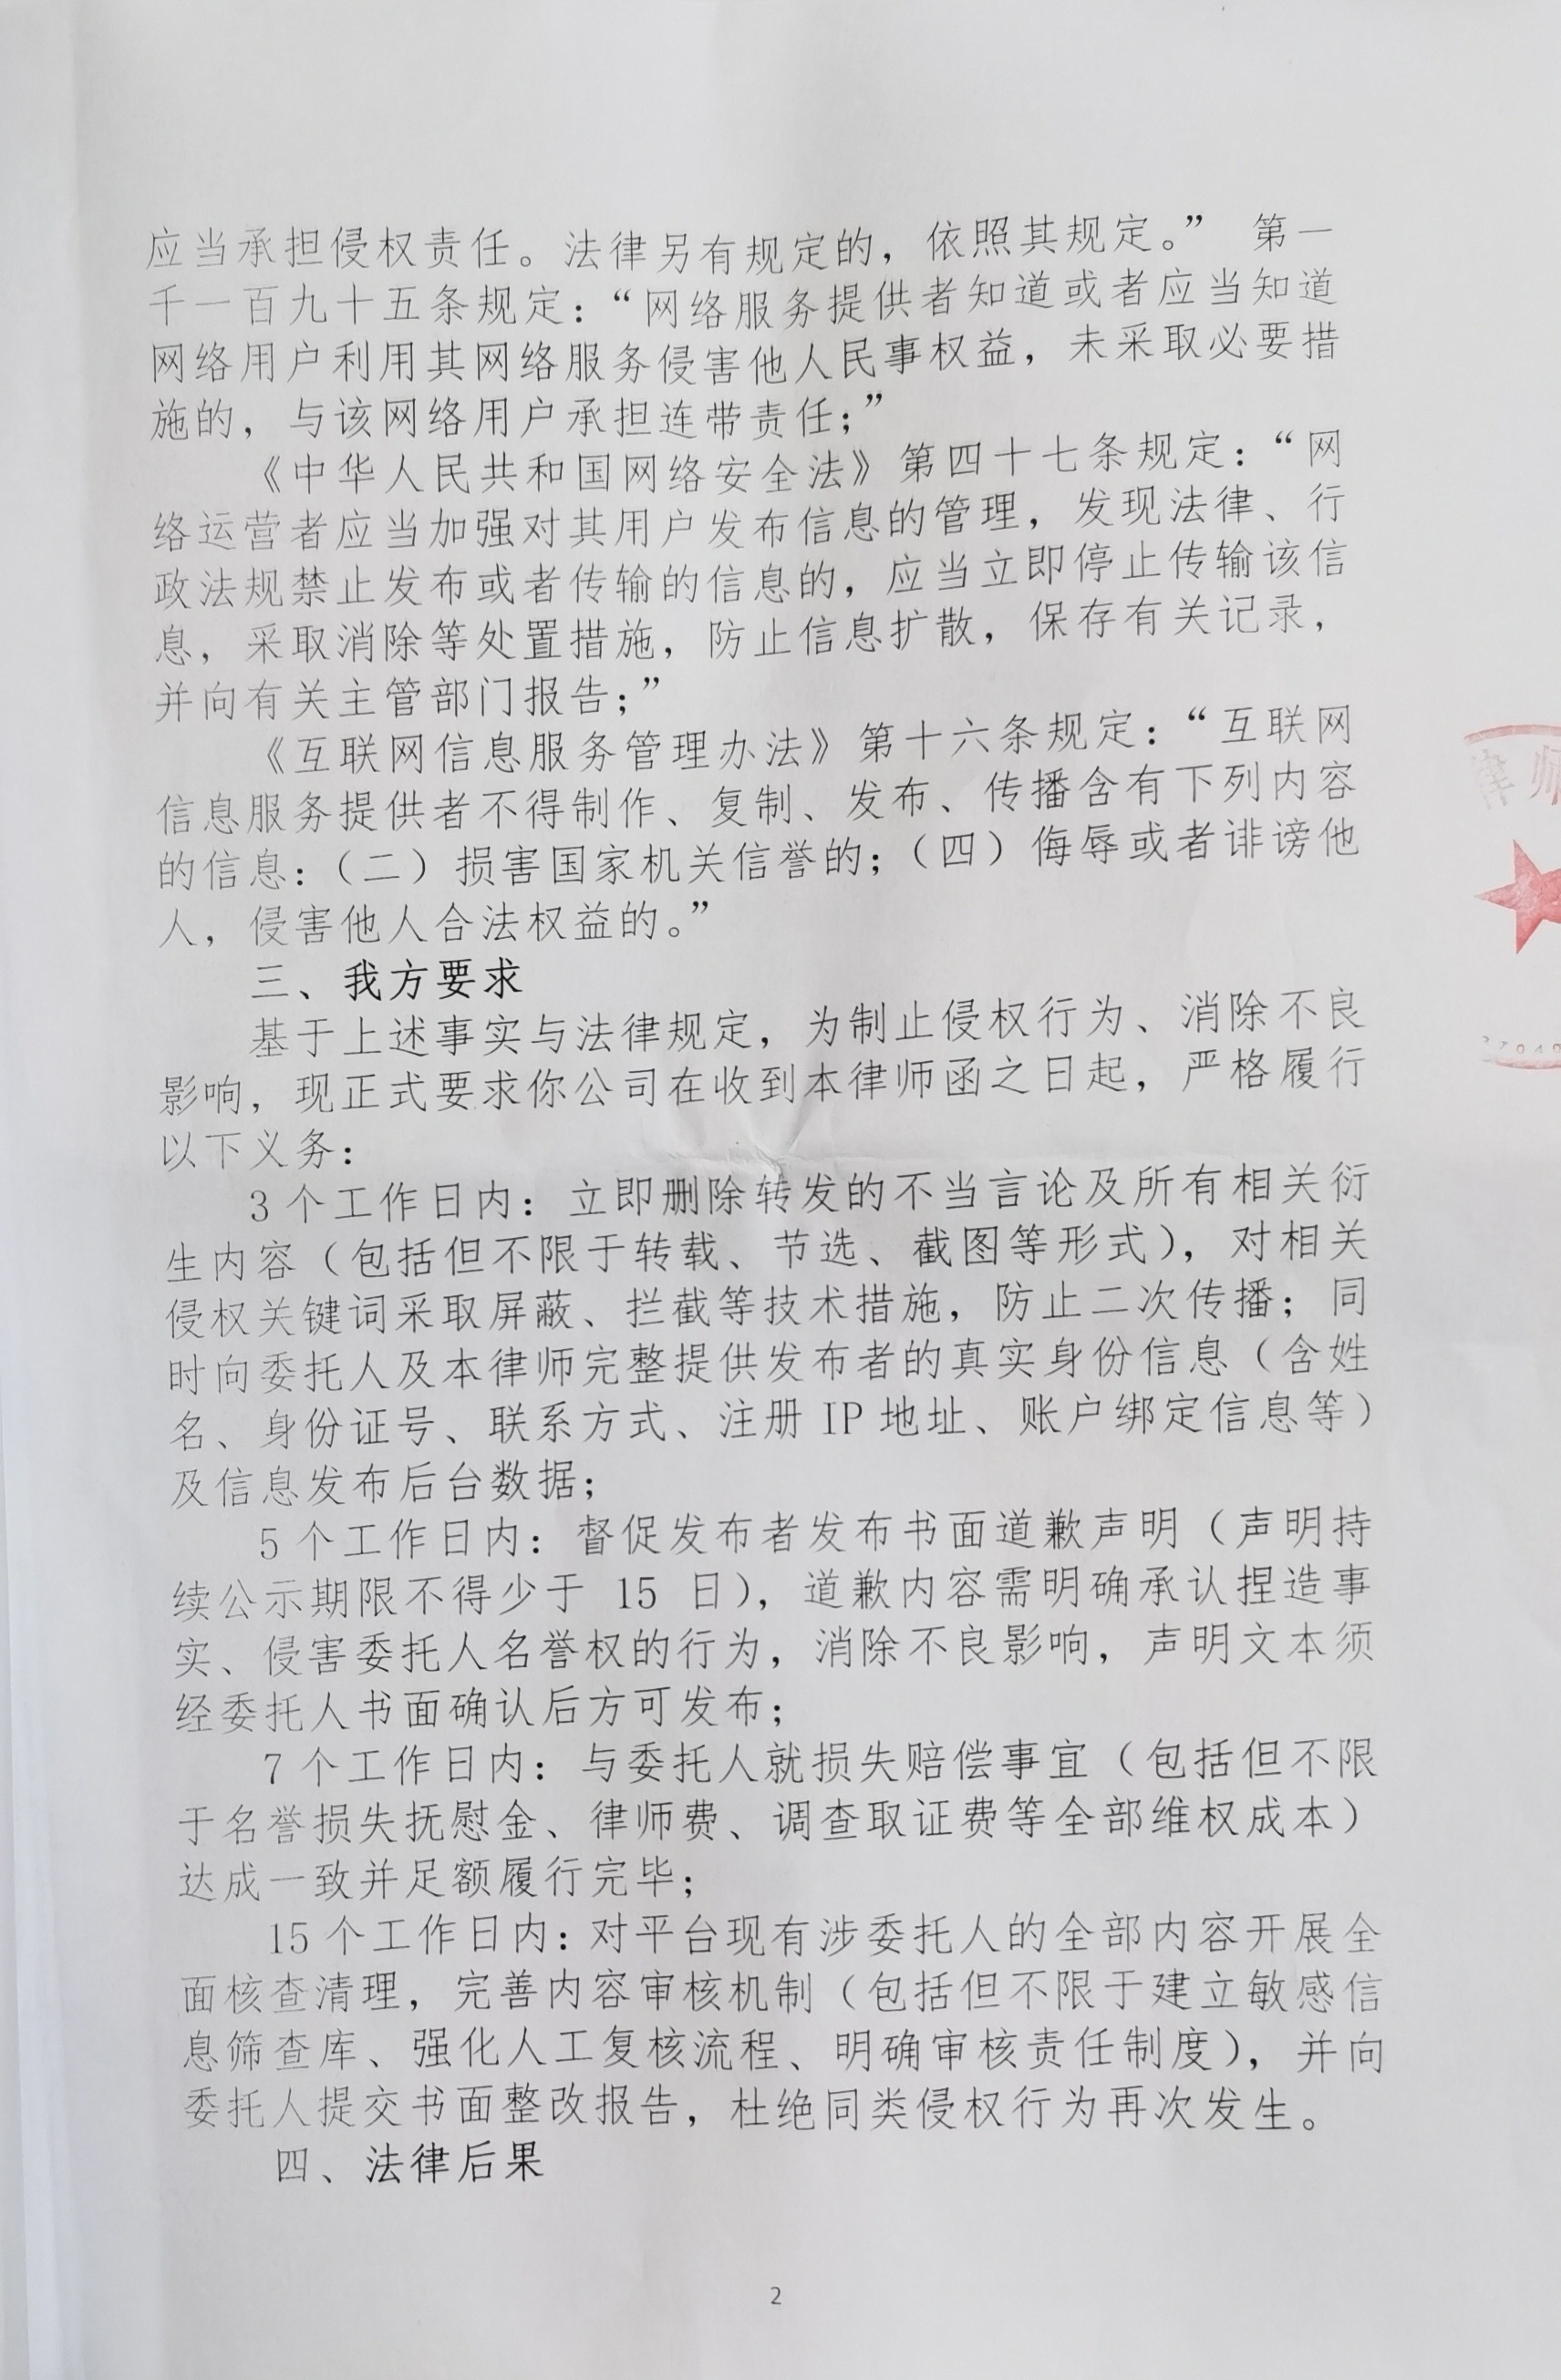 应当承担侵权责任。法律另有规定的，依照其规定。” 第一
千一百九十五条规定：“网络服务提供者知道或者应当知道
网络用户利用其网络服务侵害他人民事权益，未采取必要措
施的，与该网络用户承担连带责任；”
《中华人民共和国网络安全法》第四十七条规定：“网
络运营者应当加强对其用户发布信息的管理，发现法律、行
政法规禁止发布或者传输的信息的，应当立即停止传输该信
息，采取消除等处置措施，防止信息扩散，保存有关记录，
并向有关主管部门报告；”
《互联网信息服务管理办法》第十六条规定：“互联网
信息服务提供者不得制作、复制、发布、传播含有下列内容
的信息：（二）损害国家机关信誉的；（四）侮辱或者诽谤他
人，侵害他人合法权益的。”
律师
三、我方要求
基于上述事实与法律规定，为制止侵权行为、消除不良
影响，现正式要求你公司在收到本律师函之日起，严格履行
以下义务：
3 个工作日内：立即删除转发的不当言论及所有相关衍
生内容（包括但不限于转载、节选、截图等形式），对相关
侵权关键词采取屏蔽、拦截等技术措施，防止二次传播；同
时向委托人及本律师完整提供发布者的真实身份信息（含姓
名、身份证号、联系方式、注册 IP 地址、账户绑定信息等）
及信息发布后台数据；
5 个工作日内：督促发布者发布书面道歉声明（声明持
续公示期限不得少于 15 日），道歉内容需明确承认捏造事
实、侵害委托人名誉权的行为，消除不良影响，声明文本须
经委托人书面确认后方可发布；
7 个工作日内：与委托人就损失赔偿事宜（包括但不限
于名誉损失抚慰金、律师费、调查取证费等全部维权成本）
达成一致并足额履行完毕；
15 个工作日内：对平台现有涉委托人的全部内容开展全
面核查清理，完善内容审核机制（包括但不限于建立敏感信
息筛查库、强化人工复核流程、明确审核责任制度），并向
委托人提交书面整改报告，杜绝同类侵权行为再次发生。
四、法律后果
2